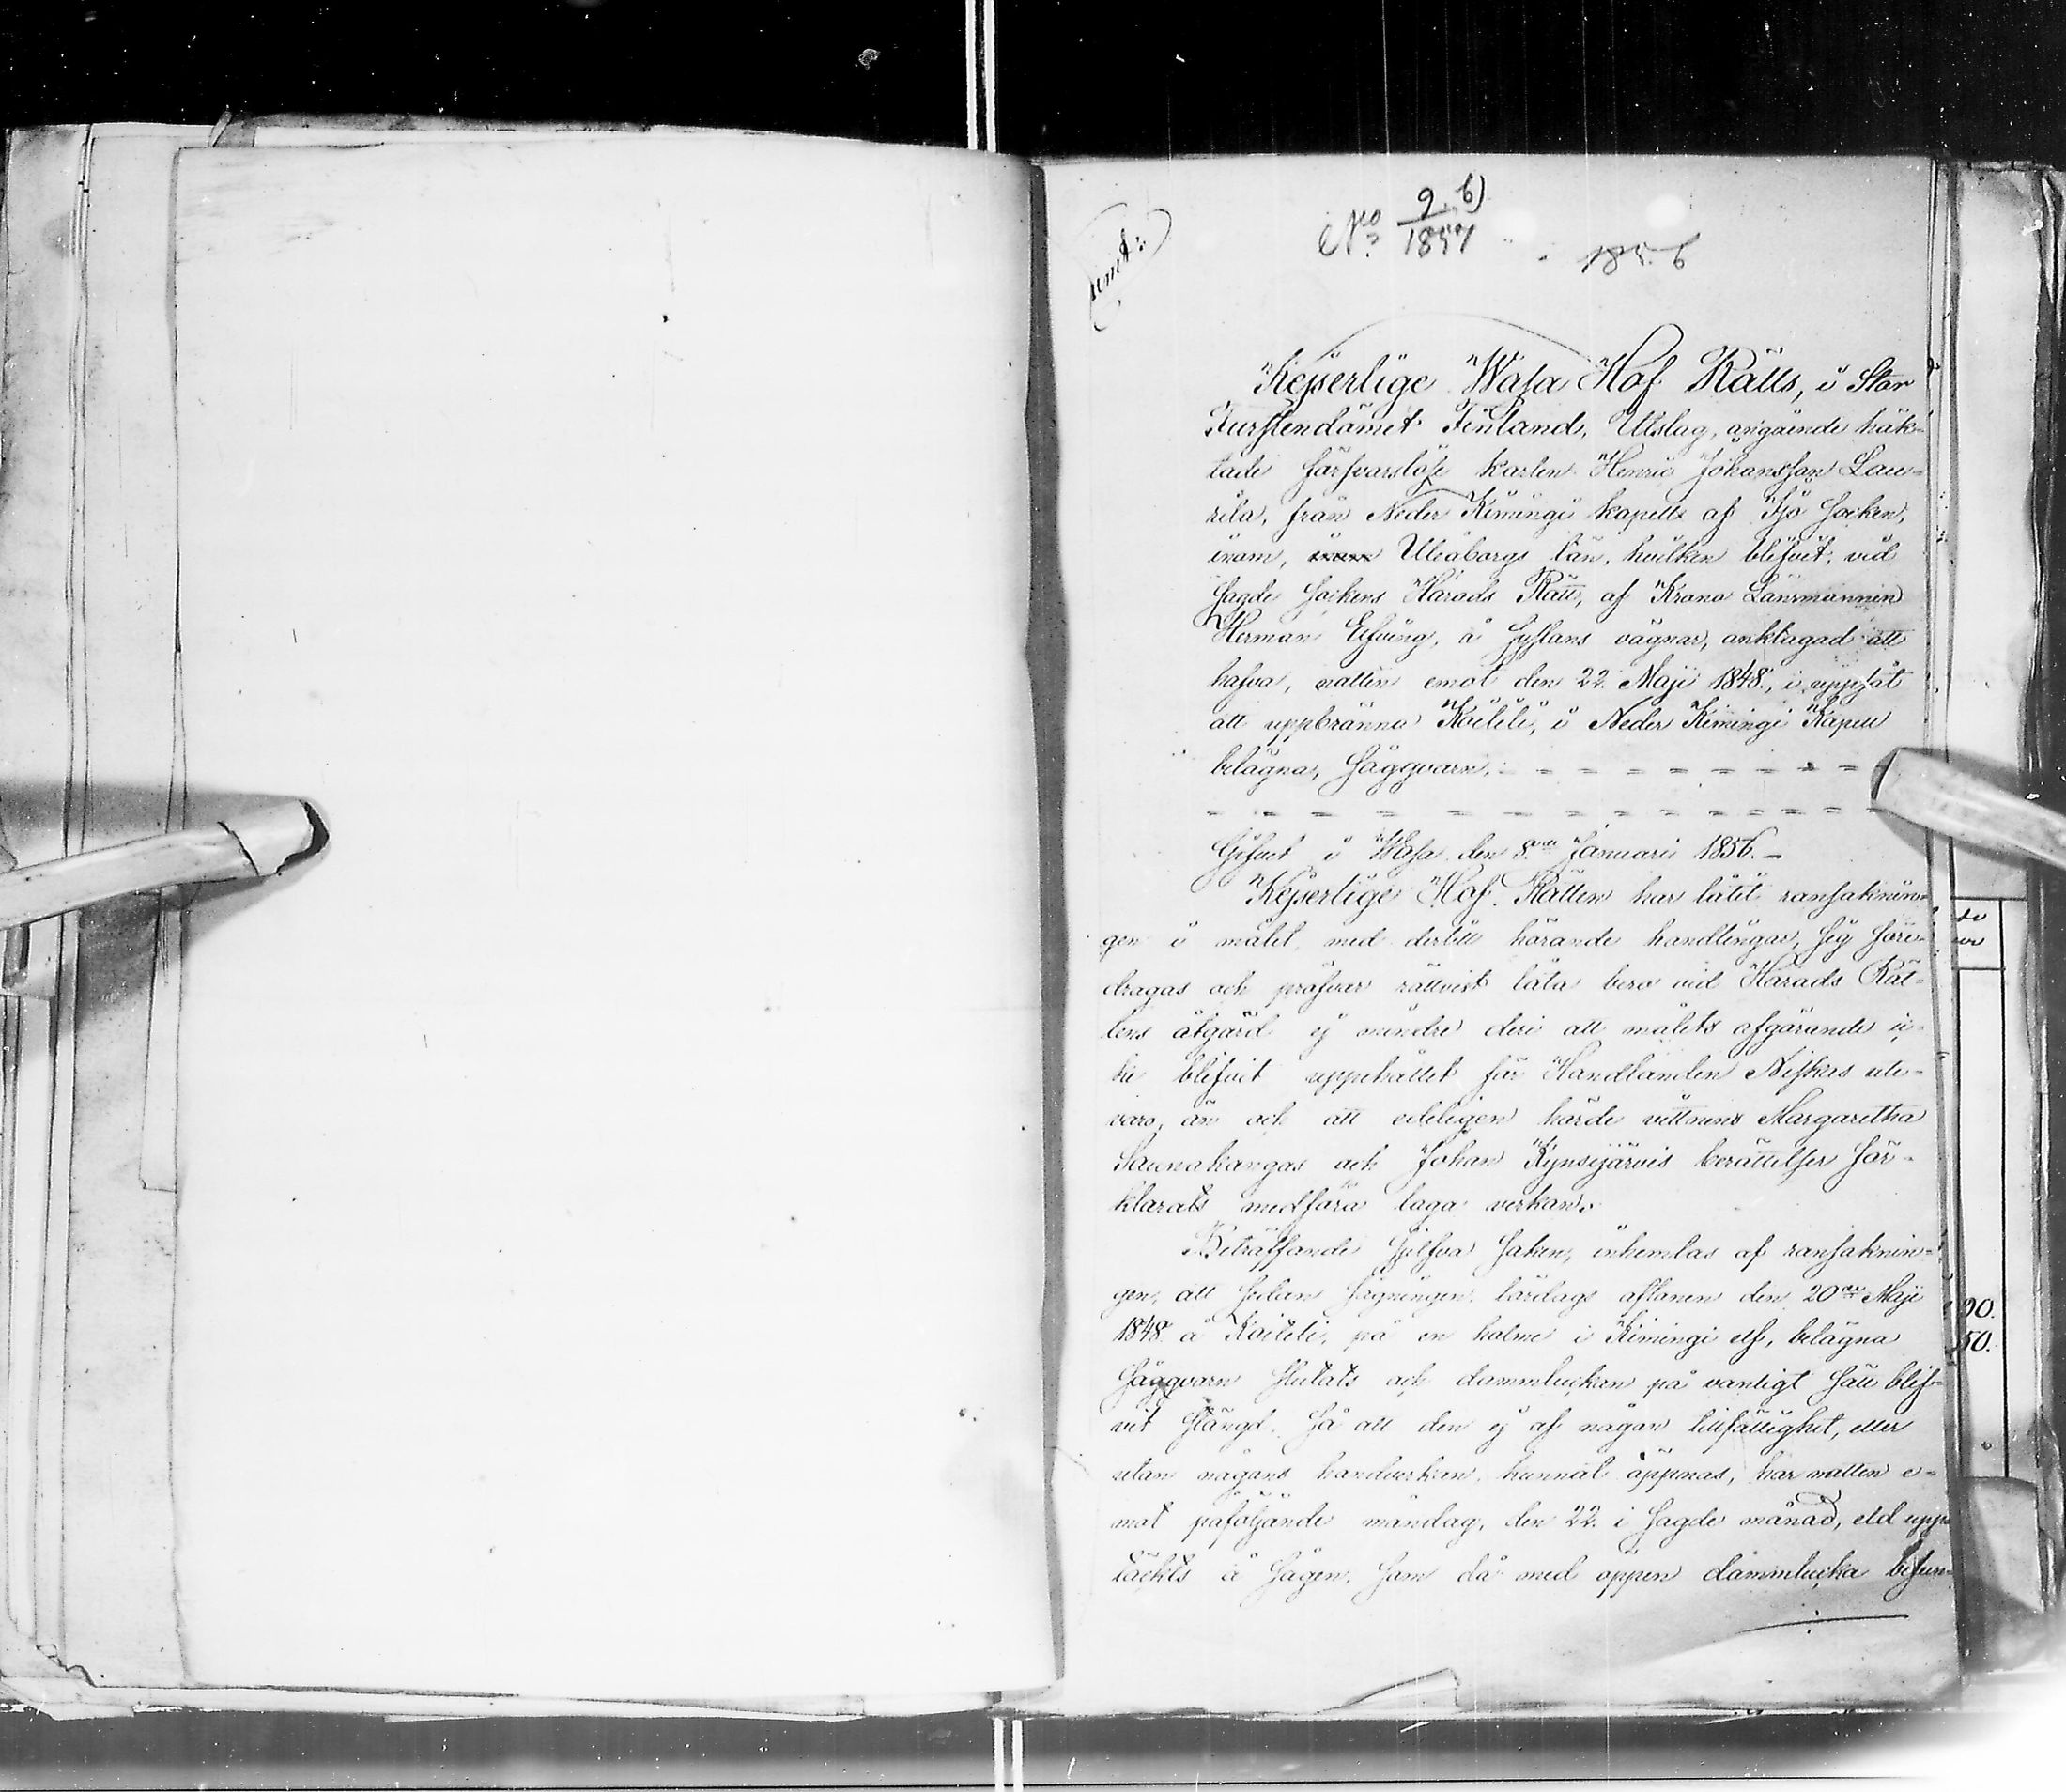 No 9. b)
1857
1856
Kejserlige Wasa Hof Rätts, i Stor
Furstendömet Finland, Utslag, angående häk-
tade försvarslöse karlen Henric Johansson Lau-
rila, från Neder Kiminge kapell af Ijo socken,
inom, Uleåborgs län, hvilken blifvit, vid
sagde sockens Härads Rätt, af Krono Länsmannen
Herman Elfving, å sysslans vägnar, anklagad att
hafva, natten emot den 22 Maji 1848, i uppsåt
att uppbränna Koiteli, i Neder Kimingi Kapell
belägna, sågqvarn. - - - - - - - - -
- - - - - - - - - - - - - - -
Gifvet i Wasa den 8de Januarii 1856. -
Kejserlige Hof Rätten har låtit ransaknin-
gen i målet med dertill hörande handlingar, sig före-
dragas och pröfvar rättvist låta bero vid Härads Rät-
tens åtgärd ej mindre deri att målets afgörande ic-
ke blifvit uppehållet för Handlanden Niskas ute-
varo, än och att edeligen hörde vittnens Margaretha
Saunakangas och Johan Kynsijärvis berättelser för-
klarats medföra laga verkan.
Beträffande sjelfva saken, inhemtas af ransaknin-
gen, att sedan sågningen lördags aftonen den 20de Maji
1848 å Koiteli, på en holme i Kimingi elf, belägna
sågqvarn slutats och dammluckan på vanligt sätt blif-
vit stängd, så att den ej af någon tillfällighet, eller
utan någons handverkan, kunnat öppnas, har natten e-
mot påföljande måndag, den 22 i sagde månad, eld upp-
täckts å sågen, som då med öppen dammlucka befun-
90.
50.